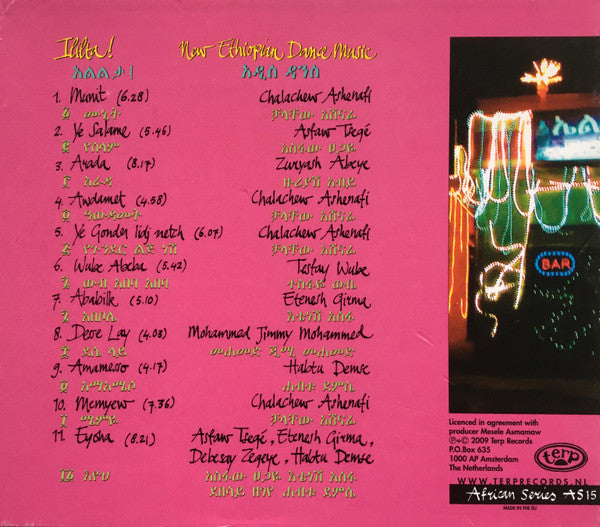 Ililta! New Ethiopian Dance Music
እልልታ! አዲስ ዳንስ
1. Munit (6.28) Chalachew Ashenafi
፩ መኒት ቻላቸው አሸናፊ
2. Yé Salame (5.46) Asfaw Tsegé
፪ የሰላም አስፋው ፀጋዬ
3. Arada (8.17) Zuryash Abeye
፫ አራዳ ዙሪያሽ አብይ
4. Awdamet (4.58) Chalachew Ashenafi
፬ ዓውዳመት ቻላቸው አሸናፊ
5. Yé Gonder lidj netch (6.07) Chalachew Ashenafi
፭ የጉንደር ልጅ ነሽ ቻላቸው አሸናፊ
6. Wube Abeba (5.42) Tesfay Wube
፮ ውብ አበባ አበባ ተስፋዬ ውቤ
7. Ababille (5.10) Etenesh Girma
፯ እቴነሽ
8. Desse Lay (4.03) Mohammed Jimmy Mohammed
፰ ደሴ ላይ መሐመድ ጂሚ መሐመድ
9. Amamesso (4.17) Habtu Demse
፱ ሐብቱ ደምሴ
10. Memyew (7.36) Chalachew Ashenafi
፲ ቻላቸው አሸናፊ
11. Eyoha (8.21) Asfaw Tsegé, Etenesh Girma,
Debesay Zegeye, Habtu Demse
እዮሀ አስፋው ፀጋዬ
ደበሳይ ዘገየ ሐብቱ ደምሴ
BAR
Licenced in agreement with
producer Mesele Asmamaw
℗+© 2009 Terp Records
P.O.Box 635
1000 AP Amsterdam
The Netherlands
terp
WWW.TERPRECORDS.NL
African Series AS15
MADE IN THE EU